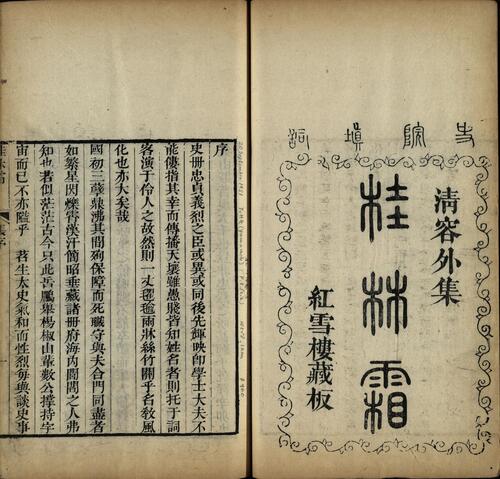 史院填詞
清容外集
桂林霜
紅雪樓藏板
序
史冊忠貞義烈之臣或異或同後先輝映卽學士大夫不
能僂指其幸而傳播天壤雖愚賤皆知姓名者則托于詞
客演于伶人之故然則一丈氍毹雨淋絲竹關乎名敎風
化也亦大矣哉
國初三孽鼎沸其間殉保障而死職守與夫合門同盡者
如繁星閃爍霄漢汗簡昭垂藏諸冊府海內閭閻之人弗
知也若似茫茫古今只此岳鵰舉楊椒山輩數公撐持宇
宙而已不亦隘乎 苕生太史氣和而性烈每與談史事